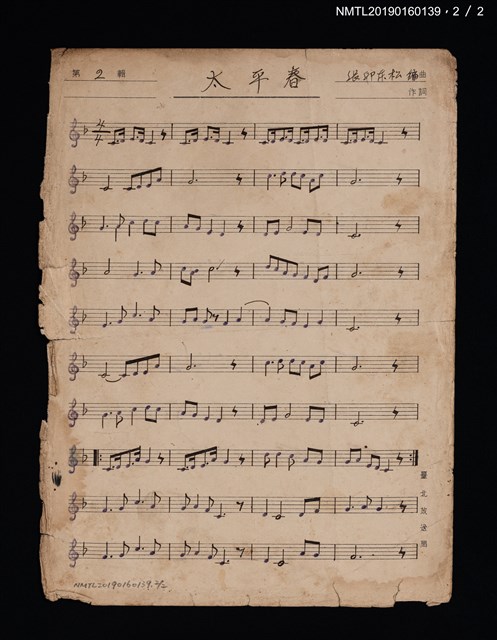 NMTL20190160139，2／2
第 2 輯
太平春
張邱東松 編曲
作詞
4/4
臺北放送局
NMTL20190160139.2/2